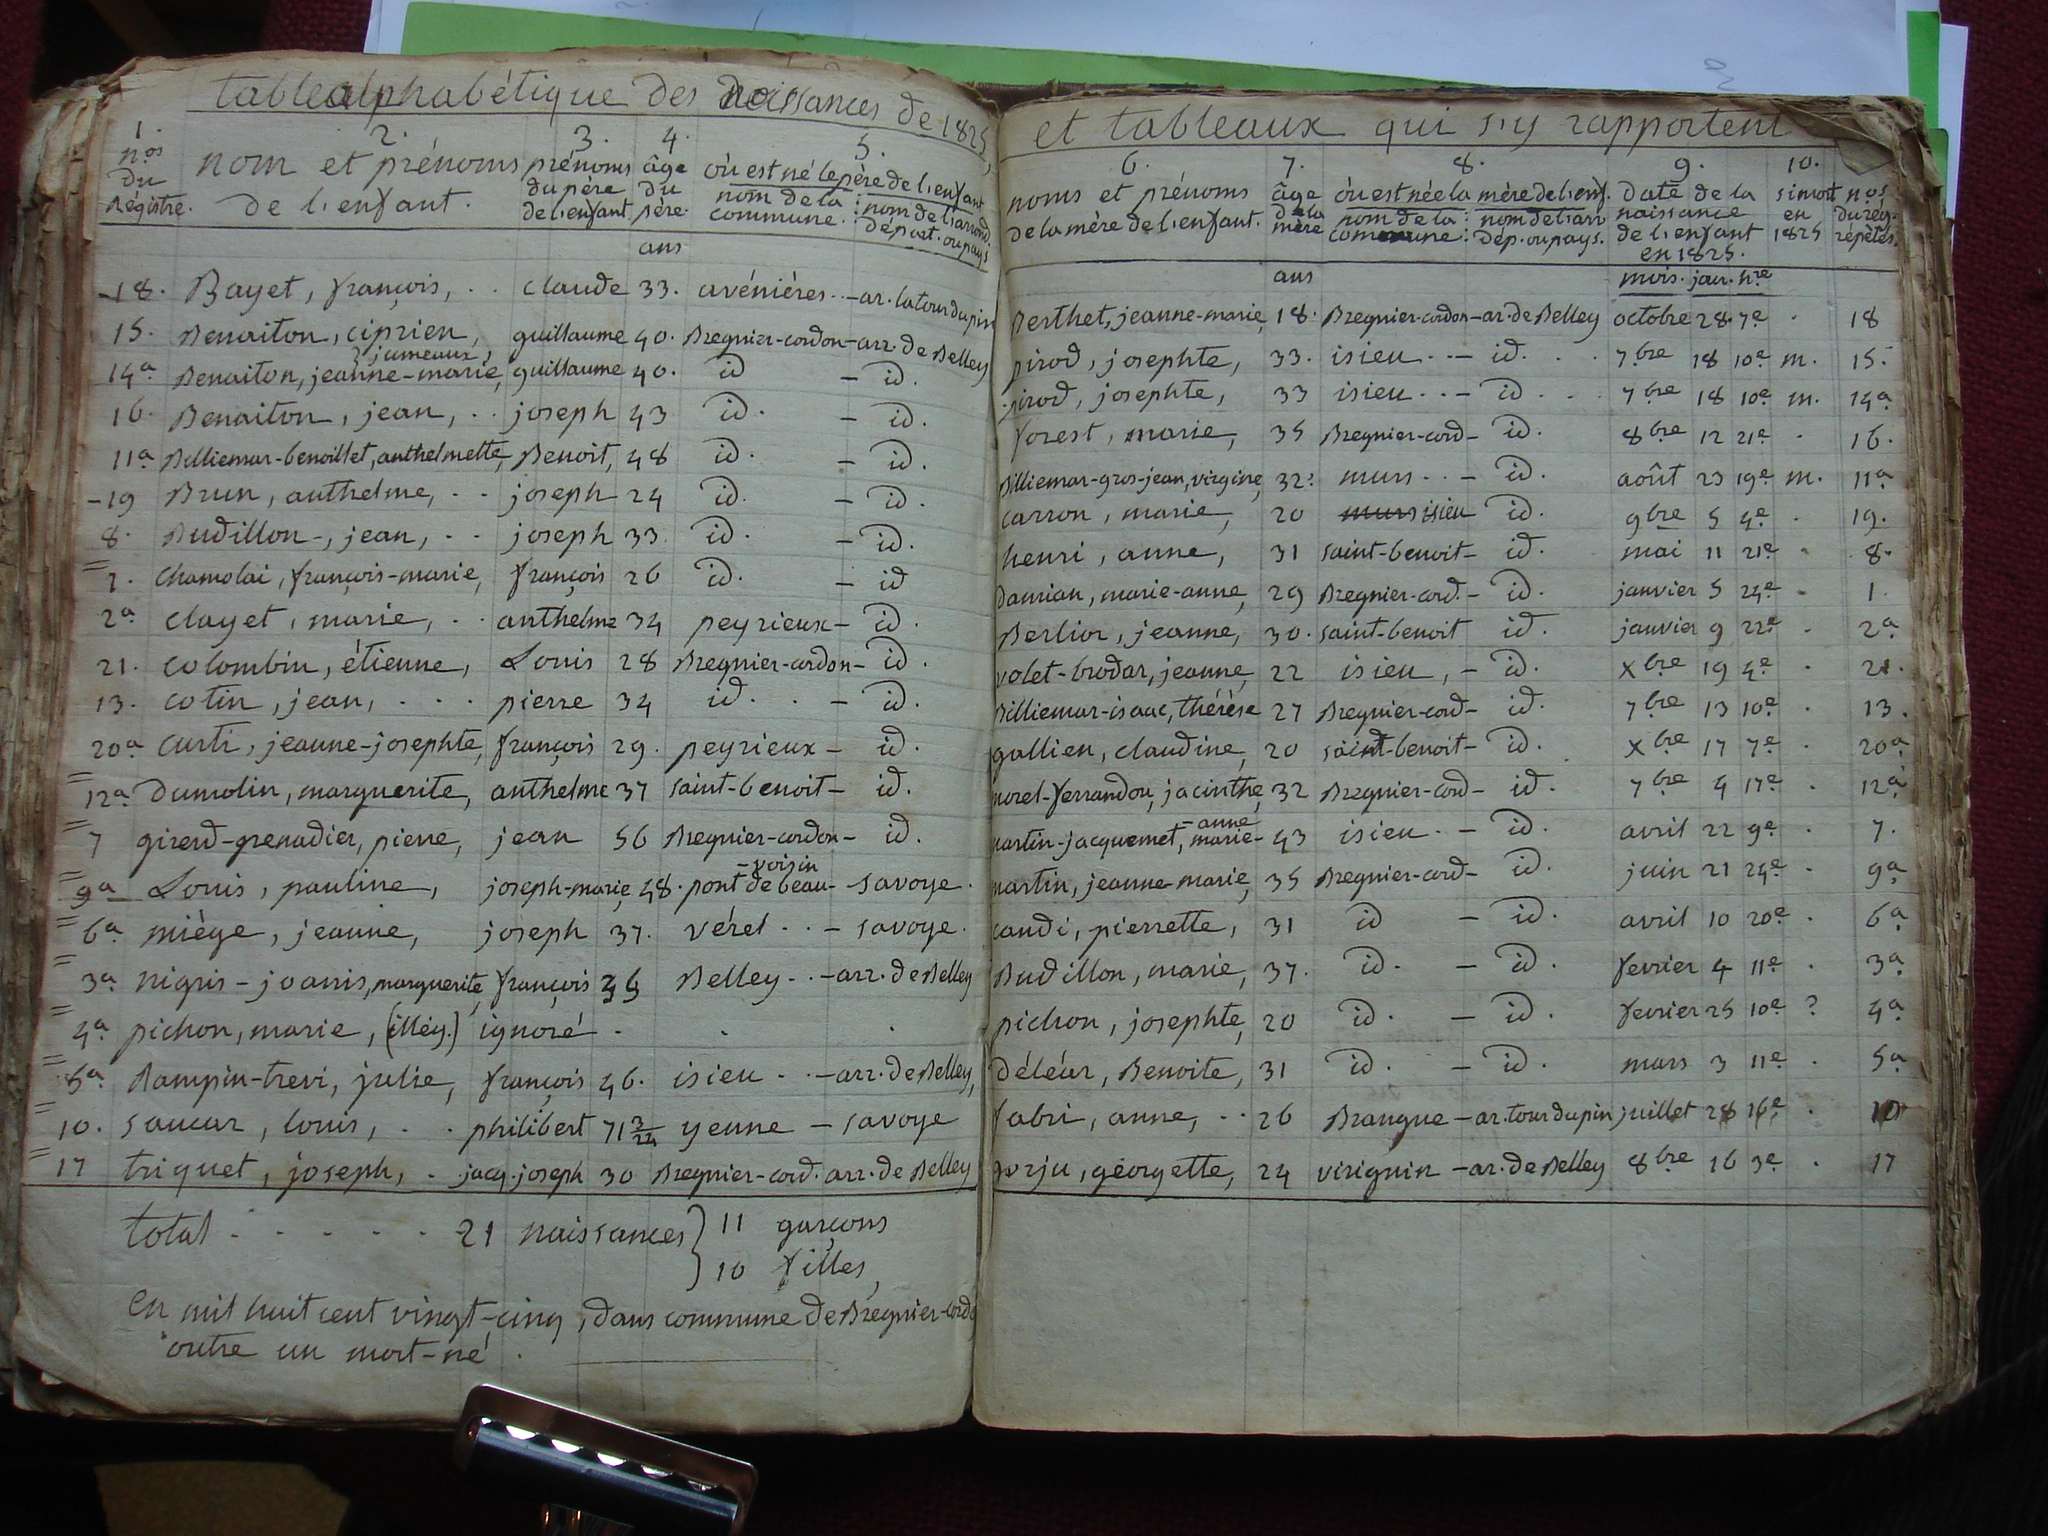 table alphabétique des naissances de 1825,
1. 2. 3. 4. 5.
nos du Régistre. nom et prénoms de l'enfant. prénoms du père de l'enfant âge du père où est né le père de l'enfant nom de la commune : nom de l'arrond. départ. ou pays
ans
18. Bayet, françois, . . claude 33. avénières . . - ar. latourdupin
15. Benaiton, ciprien, guillaume 40. Bregnier-cordon - arr. de Belley
jumeaux,
14a Benaiton, jeanne-marie, guillaume 40. id - id.
16. Benaiton, jean, . . joseph 43 id. - id.
11a Billiemar-benoillet, anthelmette, Benoit, 48 id. - id.
19 Brun, anthelme, . . joseph 24 id. - id.
8. Budillon-, jean, . . joseph 33 id. - id.
1. chamolai, françois-marie, françois 26 id. - id
2a clayet, marie, . . anthelme 34 peyrieux - id.
21. colombin, étienne, Louis 28 Bregnier-cordon - id.
13. cotin, jean, . . . pierre 34 id. . . - id.
20a curti, jeanne-josephte, françois 29. peyrieux - id.
12a Dumolin, marguerite, anthelme 37 saint-benoit - id.
7 girerd-grenadier, pierre, jean 56 Bregnier-cordon - id.
9a Louis, pauline, joseph-marie, 48. pont de beau-voisin - savoye.
6a miège, jeanne, joseph 37. vérel . . - savoye.
3a nigris-joanis, marguerite, françois 35 Belley . . - arr. de Belley
4a pichon, marie, (illég.) ignoré . . .
5a Rampin-trevi, julie, françois 46. isieu . . - arr. de Belley,
10. saucar, louis, . . philibert 71 3/24 yenne - savoye
17 triquet, joseph, . jacq. joseph 30 Bregnier-cord. arr. de Belley
total . . . . . 21 naissances } 11 garçons
10 filles,
en mil huit cent vingt-cinq, dans commune de Bregnier-cordo
outre un mort-né.
et tableaux qui s'y rapportent
6. 7. 8. 9. 10.
noms et prénoms de la mère de l'enfant. âge de la mère où est née la mère de l'enf. nom de la commune : nom de l'arr dép. ou pays. date de la naissance de l'enfant en 1825. si mort en 1825 nos du rég. répétés.
ans mois. jour. hre
Berthet, jeanne-marie, 18. Bregnier-cordon - ar. de Belley octobre 28. 7e . 18
pirod, josephte, 33. isieu . . - id. . . 7bre 18 10e m. 15.
pirod, josephte, 33 isieu . . - id . . 7bre 18 10e m. 14a
forest, marie, 35 Bregnier-cord - id. 8bre 12 21e . 16.
Billiemar-gros-jean, virgine, 32. murs . . - id. août 23 19e m. 11a
carron, marie, 20 murs isieu id. 9bre 5 4e . 19.
henri, anne, 31 saint-benoit - id. mai 11 21e . 8.
Damian, marie-anne, 29 Bregnier-cord. - id. janvier 5 24e . 1.
Berlior, jeanne, 30. saint-benoit id. janvier 9 22e . 2a
volet-brodar, jeanne, 22 isieu, - id. Xbre 19 4e . 21.
Billiemar-isaac, thérèse 27 Bregnier-cord - id. 7bre 13 10e . 13.
gallien, claudine, 20 saint-benoit - id. Xbre 17 7e . 20a
morel-ferrandon, jacinthe, 32 Bregnier-cord - id. 7bre 4 17e . 12a
martin-jacquemet, marie-anne 43 isieu . - id. avril 22 9e . 7.
martin, jeanne-marie, 35 Bregnier-cord - id. juin 21 24e . 9a
candi, pierrette, 31 id - id. avril 10 20e . 6a
Budillon, marie, 37. id. - id. fevrier 4 11e . 3a
pichon, josephte, 20 id. - id. fevrier 25 10e ? 4a
déléur, Benoite, 31 id. - id. mars 3 11e . 5a
fabri, anne, . . 26 Brangue - ar. tour du pin juillet 28 16e . 10
gorju, géorgette, 24 virignin - ar. de Belley 8bre 16 3e . 17